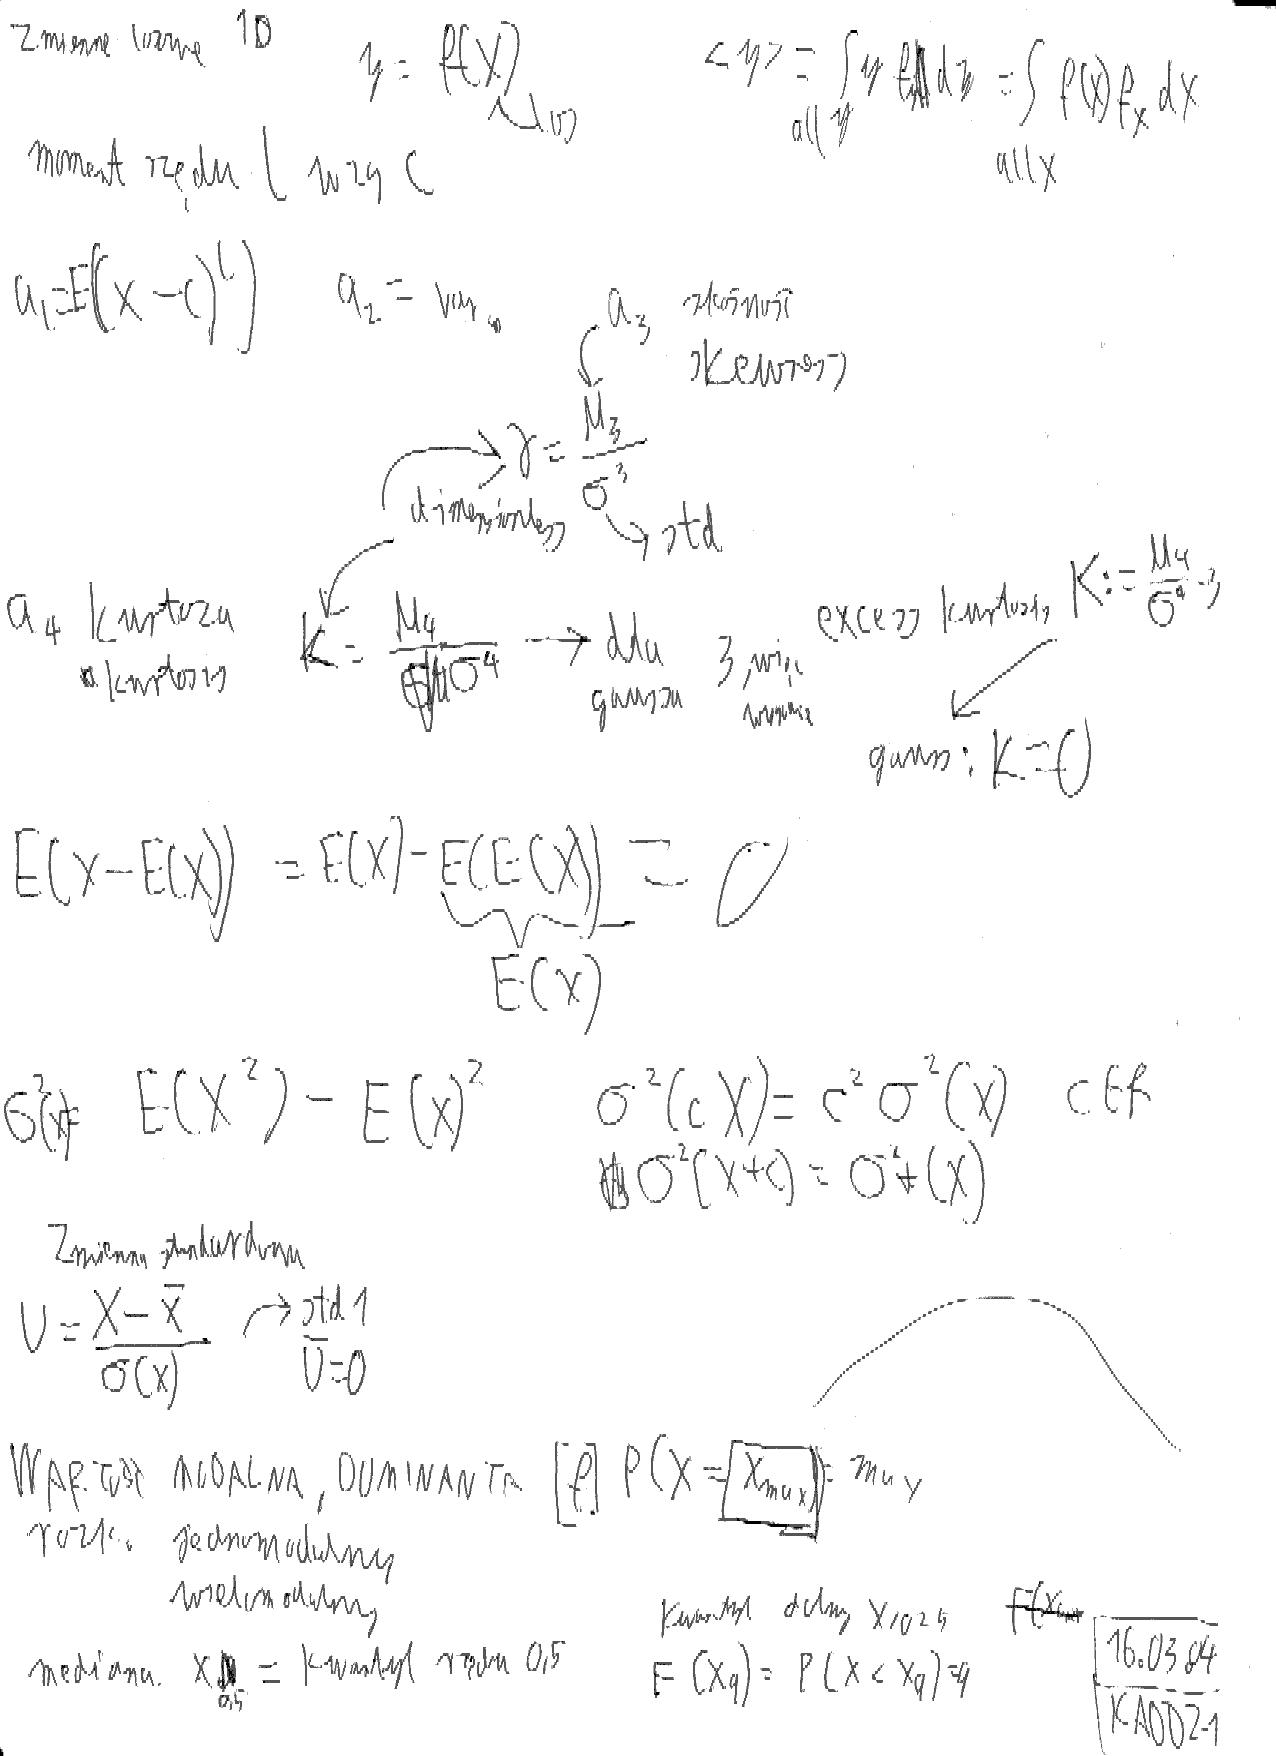 Zmienne losowe 1D
y = f(X)
<y> = ∫ y f_y dy = ∫ f(x) f_x dx
all y all x
moment rzędu l wzg c
a_l = E((x-c)^l) a_2 = var
a_3 skośność
skewness
γ = M_3 / σ^3
dimensionless
std
a_4 kurtoza
kurtosis
K = M_4 / σ^4 → dla gaussa 3, więc
excess kurtosis K := M_4 / σ^4 - 3
gauss: K = 0
E(X-E(X)) = E(X) - E(E(X)) = 0
E(X)
σ^2(x) = E(X^2) - E(x)^2
σ^2(cX) = c^2 σ^2(X) c∈R
σ^2(X+c) = σ^2(X)
Zmienna standardowa
U = X - x̄ / σ(x) → std 1
Ū = 0
WARTOŚĆ MODALNA, DOMINANTA [f] P(X = x_max) = max
rozkł. jednomodalny
wielomodalny
kwantyl dolny x_0,25
mediana x_0,5 = kwantyl rzędu 0,5
F(x_q) = P(X < x_q) = q
16.03.04
KADD Z-1